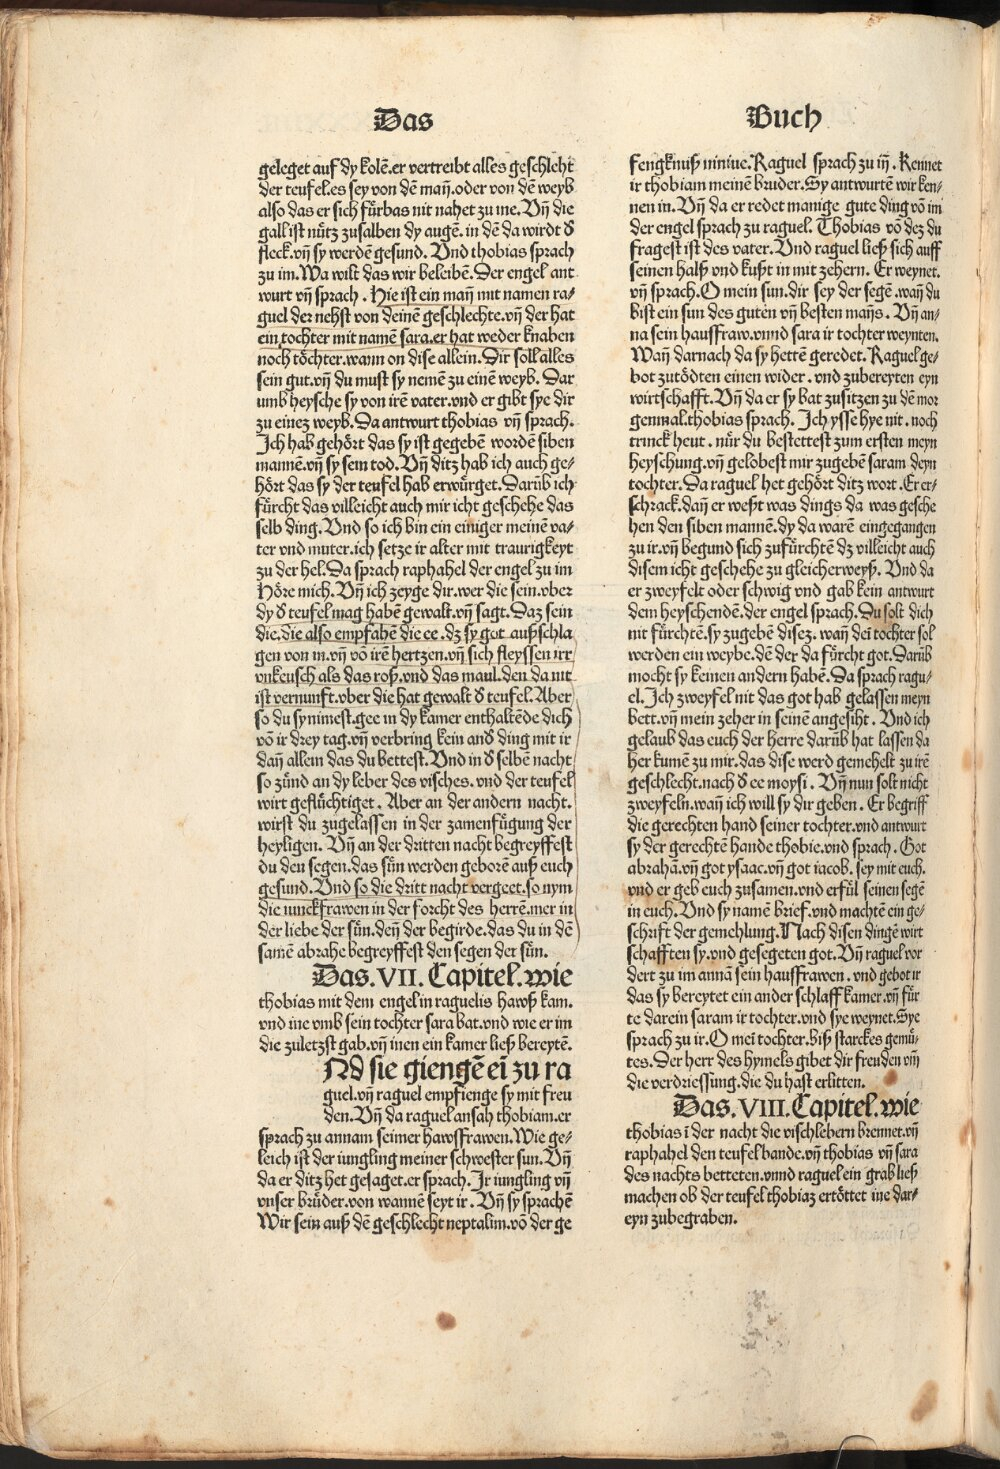 Das
Buch
geleget auf dy kolē.er vertreibt alles geschleht
der teufel.es sey von dē mañ.oder von dē weyb
also das er sich fürbas nit nahet zu ine. Vñ die
gall ist nütz zusalben dy augē.in dē da wirdt d̄
fleck.vñ sy werdē gesund. Vnd thobias sprach
zu im.Wa wilt das wir beleibē.Der engel ant
wurt vñ sprach . Hie ist ein mañ mit namen ra⸗
guel der nehst von deinē geschlechte.vñ der hat
ein tochter mit namē sara.er hat weder knaben
noch töchter.wann on dise allein. Dir soll alles
sein gut.vñ du must sy nemē zu einē weyb. Dar
umb heysche sy von irē vater.vnd er gibt sye dir
zu einez weyb.Da antwurt thobias vñ sprach.
Ich hab gehört das sy ist gegebē wordē siben
mannē.vñ sy sein tod.Vñ ditz hab ich auch ge⸗
hört das sy der teufel hab erwürget.Darūb ich
fürcht das villeicht auch mir icht geschehe das
selb ding.Vnd so ich bin ein einiger meinē va⸗
ter vnd muter.ich setze ir alter mit traurigkeyt
zu der hel.Da sprach raphahel der engel zu im
Höre mich.Vñ ich zeyge dir.wer die sein.vber
dy d̄ teufel mag habē gewalt.vñ sagt.Daz sein
die.die also empfahē die ee .dz sy got außschla
gen von in.vñ vō irē hertzen.vñ sich fleyssen irr
vnkeusch als das roß.vnd das maul.den da nit
ist vernunft.vber die hat gewalt d̄ teufel. Aber
so du sy nimest.gee in dy kamer enthaltēde dich
vō ir drey tag.vñ verbring kein and̄ ding mit ir
dañ allein das du bettest.Vnd in d̄ selbē nacht
so zünd an dy leber des visches. vnd der teufel
wirt geflüchtiget . Aber an der andern nacht.
wirst du zugelassen in der zamenfügung der
heyligen. Vñ an der dritten nacht begreyffest
du den segen.das sün werden geborē auß euch
gesund. Vnd so die dritt nacht vergeet.so nym
die iunckfrawen in der forcht des herrē.mer in
der liebe der sün.deñ der begirde.das du in dē
samē abrahe begreyffest den segen der sün.
Das.VII.Capitel.wie
thobias mit dem engel in raguelis hawß kam.
vnd ine vmb sein tochter sara bat.vnd wie er im
die zuletzst gab.vñ inen ein kamer ließ bereytē.
ND sie giengē ei zu ra
guel.vñ raguel empfienge sy mit freu
den.Vñ da raguel ansah thobiam.er
sprach zu annam seimer hawsfrawen.Wie ge⸗
leich ist der iungling meiner schwester sun.Vñ
da er ditz het gesaget.er sprach. Ir iungling vñ
vnser brüder.von wannē seyt ir . Vñ sy sprachē
Wir sein auß dē geschlecht neptalim.vō der ge
fengknuß niniue.Raguel sprach zu iñ . Kennet
ir thobiam meinē bruder.Sy antwurtē wir ken⸗
nen in.Vñ da er redet manige gute ding vō im
der engel sprach zu raguel. Thobias vō dez du
fragest ist des vater. Vnd raguel ließ sich auff
seinen halß vnd kußt in mit zehern. Er weynet.
vñ sprach.O mein sun.dir sey der segē .wañ du
bist ein sun des guten vñ besten mañs. Vñ an⸗
na sein haussfraw.vnnd sara ir tochter weynten.
Wañ darnach da sy hettē geredet.Raguel ge⸗
bot zutödten einen wider . vnd zubereyten eyn
wirtschafft. Vñ da er sy bat zusitzen zu dē mor
genmal.thobias sprach. Ich ysse hye nit . noch
trinck heut . nür du bestettest zum ersten meyn
heyschung.vñ gelobest mir zugebē saram deyn
tochter. Da raguel het gehört ditz wort .Er er⸗
schrack.dañ er weßt was dings da was gesche
hen den siben mannē.dy da warē eingegangen
zu ir.vñ begund sich zufürchtē dz villeicht auch
disem icht geschehe zu gleicherweyß. Vnd da
er zweyfelt oder schwig vnd gab kein antwurt
dem heyschendē.der engel sprach. Du solt dich
nit fürchtē.sy zugebē disez. wañ dei tochter sol
werden ein weybe.dē der da fürcht got.Darūb
mocht sy keinen andern habē.Da sprach ragu⸗
el.Ich zweyfel nit das got hab gelassen meyn
bett.vñ mein zeher in seinē angesiht . Vnd ich
gelaub das euch der herre darūb hat lassen da
her kumē zu mir.das dise werd gemehelt zu irē
geschlecht.nach d̄ ee moysi . Vñ nun solt nicht
zweyfeln.wañ ich will sy dir geben . Er begriff
die gerechten hand seiner tochter.vnd antwurt
sy der gerechtē hande thobie.vnd sprach . Got
abrahā.vñ got ysaac.vñ got iacob. sey mit euch.
vnd er geb euch zusamen.vnd erfül seinen segē
in euch.Vnd sy namē brief.vnd machtē ein ge⸗
schrift der gemehlung.Nach disen dingē wirt
schafften sy.vnd gesegeten got.Vñ raguel vor
dert zu im annā sein haussfrawen . vnd gebot ir
das sy bereytet ein ander schlaff kamer.vñ für
te darein saram ir tochter.vnd sye weynet.Sye
sprach zu ir.O mei tochter.biß starckes gemü⸗
tes.Der herr des hymels gibet dir freuden vm
die verdriessung.die du hast erlitten.
Das.VIII.Capitel.wie
thobias ī der nacht die vischlebern brennet.vñ
raphahel den teufel bande.vñ thobias vñ sara
des nachts betteten.vnnd raguel ein grab ließ
machen ob der teufel thobiaz ertöttet ine dar⸗
eyn zubegraben.